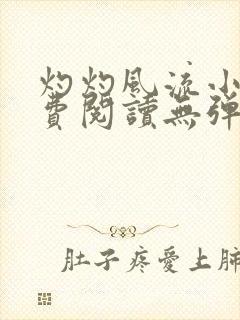 灼灼風流小
費閱讀無彈
肚子疼愛上肺